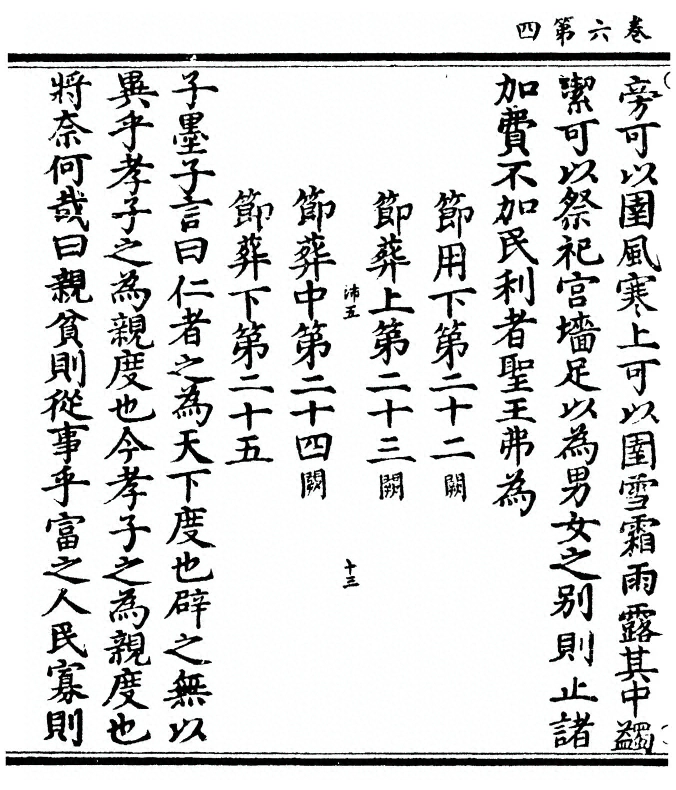 卷六第四
旁可以圉風寒上可以圉雪霜雨露其中蠲
潔可以祭祀宮墻足以為男女之別則止諸
加費不加民利者聖王弗為
節用下第二十二闕
節葬上第二十三闕
沛五
十三
節葬中第二十四闕
節葬下第二十五
子墨子言曰仁者之為天下度也辟之無以
異乎孝子之為親度也今孝子之為親度也
將奈何哉曰親貧則從事乎富之人民寡則